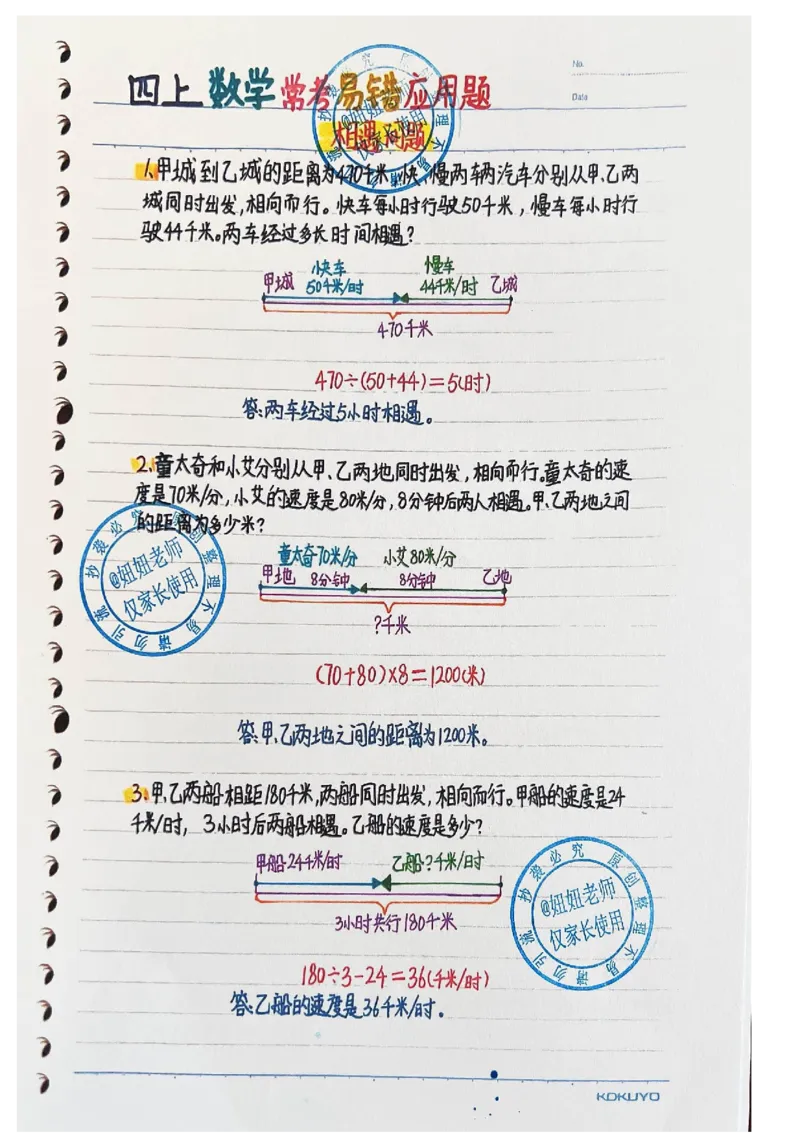 No.
Data
四上数学常考易错应用题
相遇问题
1.甲城到乙城的距离为470千米,快、慢两车两汽车分别从甲、乙两
城同时出发,相向而行。快车每小时行驶50千米,慢车每小时行
驶44千米。两车经过多长时间相遇?
快车 慢车
甲城 50千米/时 44千米/时 乙城
470千米
470÷(50+44)=5(时)
答:两车经过5小时相遇。
2.童太奇和小艾分别从甲、乙两地同时出发,相向而行。童太奇的速
度是70米/分,小艾的速度是80米/分,8分钟后两人相遇。甲、乙两地之间
的距离为多少米?
童太奇70米/分 小艾80米/分
甲地 8分钟 8分钟 乙地
?千米
(70+80)×8=1200(米)
答:甲、乙两地之间的距离为1200米。
3.甲、乙两船相距180千米,两船同时出发,相向而行。甲船的速度是24
千米/时, 3小时后两船相遇。乙船的速度是多少?
甲船24千米/时 乙船?千米/时
3小时共行180千米
180÷3-24=36(千米/时)
答:乙船的速度是36千米/时.
KOKUYO
原创整理不易 请勿引流 抄袭必究
@妞妞老师
仅家长使用
原创整理不易 请勿引流 抄袭必究
@妞妞老师
仅家长使用
原创整理不易 请勿引流 抄袭必究
@妞妞老师
仅家长使用